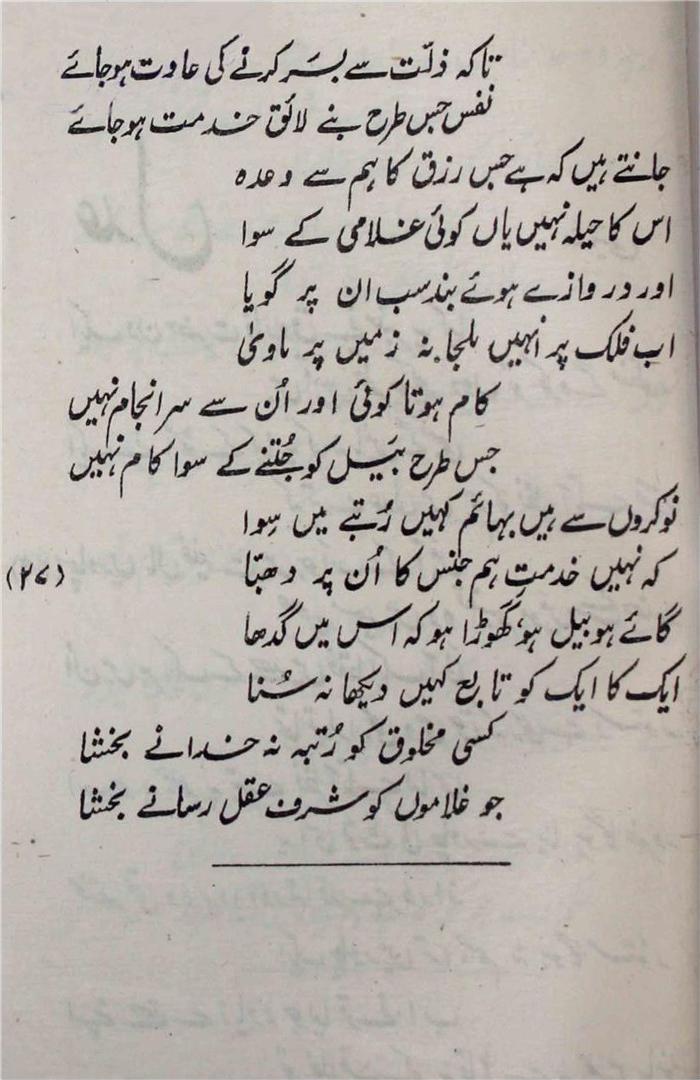 تاکہ ذلّت سے بسَر کرنے کی عادت ہو جائے
نفس جس طرح بنے لائق خدمت ہو جائے
جانتے ہیں کہ ہے جس رزق کا ہم سے وعدہ
اس کا حیلہ نہیں یاں کوئی غلامی کے سوا
اور دروازے ہوئے بند سب ان پر گویا
اب فلک پر انہیں ملجا نہ زمیں پر ماویٰ
کام ہوتا کوئی اور اُن سے سر انجام نہیں
جس طرح بَیل کو جُتنے کے سوا کام نہیں
نوکروں سے ہیں بہائم کہیں رُتبے میں سِوا
کہ نہیں خدمتِ ہم جنس کا اُن پر دھبّا
(۲۷)
گائے ہو بیل ہو، گھوڑا ہو کہ اس میں گدھا
ایک کا ایک کو تابع کہیں دیکھا نہ سُنا
کسی مخلوق کو رُتبہ نہ خدا نے بخشا
جو غلاموں کو شرف عقل رسا نے بخشا